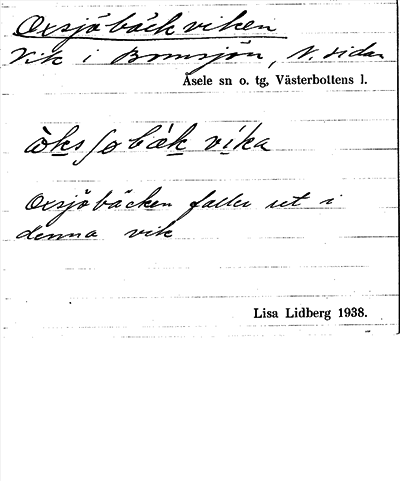 Oxsjöbäckviken
Vik i Bomsjön, N. sidan
Åsele sn o. tg, Västerbottens l.
òksʃøbàk vika
Oxsjöbäcken faller ut i
denna vik
Lisa Lidberg 1938.